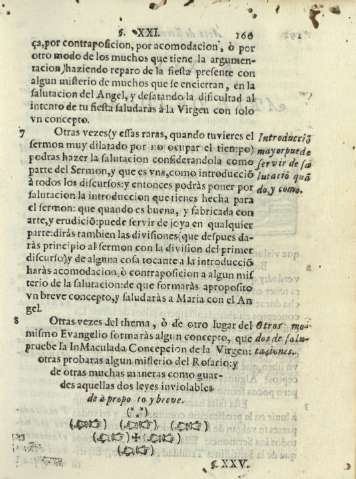 §. XXI. 160
ça, por contraposicion, por acomodacion, ò por
otro modo de los muchos que tiene la argumen-
tacion, haziendo reparo de la fiesta presente con
algun misterio de muchos que se encierran, en la
salutacion del Angel, y desatando la dificultad al
intento de tu fiesta saludaràs à la Virgen con solo
vn concepto.
7 Otras vezes (y essas raras, quando tuvieres el
sermon muy dilatado por no ocupar el tiempo)
podras hazer la salutacion considerandola como
parte del Sermon, y que es vna, como introducciõ
à todos los discursos: y entonces podràs poner por
salutacion la introduccion que tienes hecha para
el sermon: que quando es buena, y fabricada con
arte, y erudiciõ: puede servir de joya en qualquier
parte: diràs tambien las divisiones (que despues da-
ràs principio al sermon con la division del primer
discurso) y de alguna cosa tocante a la introducciõ
haràs acomodaciõ, ò contraposicion a algun mis
terio de la salutacion: de que formaràs aproposito
vn breve concepto, y saludaràs a Maria con el An
gel.
Introducciõ
mayor puede
servir de sa
lutaciõ quã
do, y como.
8 Otras vezes del thema, ò de otro lugar del
mismo Evangelio formaràs algun concepto, que
pruebe la InMaculada Concepcion de la Virgen:
otras probaras algun misterio del Rosario: y
de otras muchas maneras como guar-
des aquellas dos leyes inviolables
de à propo to y breve.
Otros mo-
dos de salu-
taciones.
§. XXV.